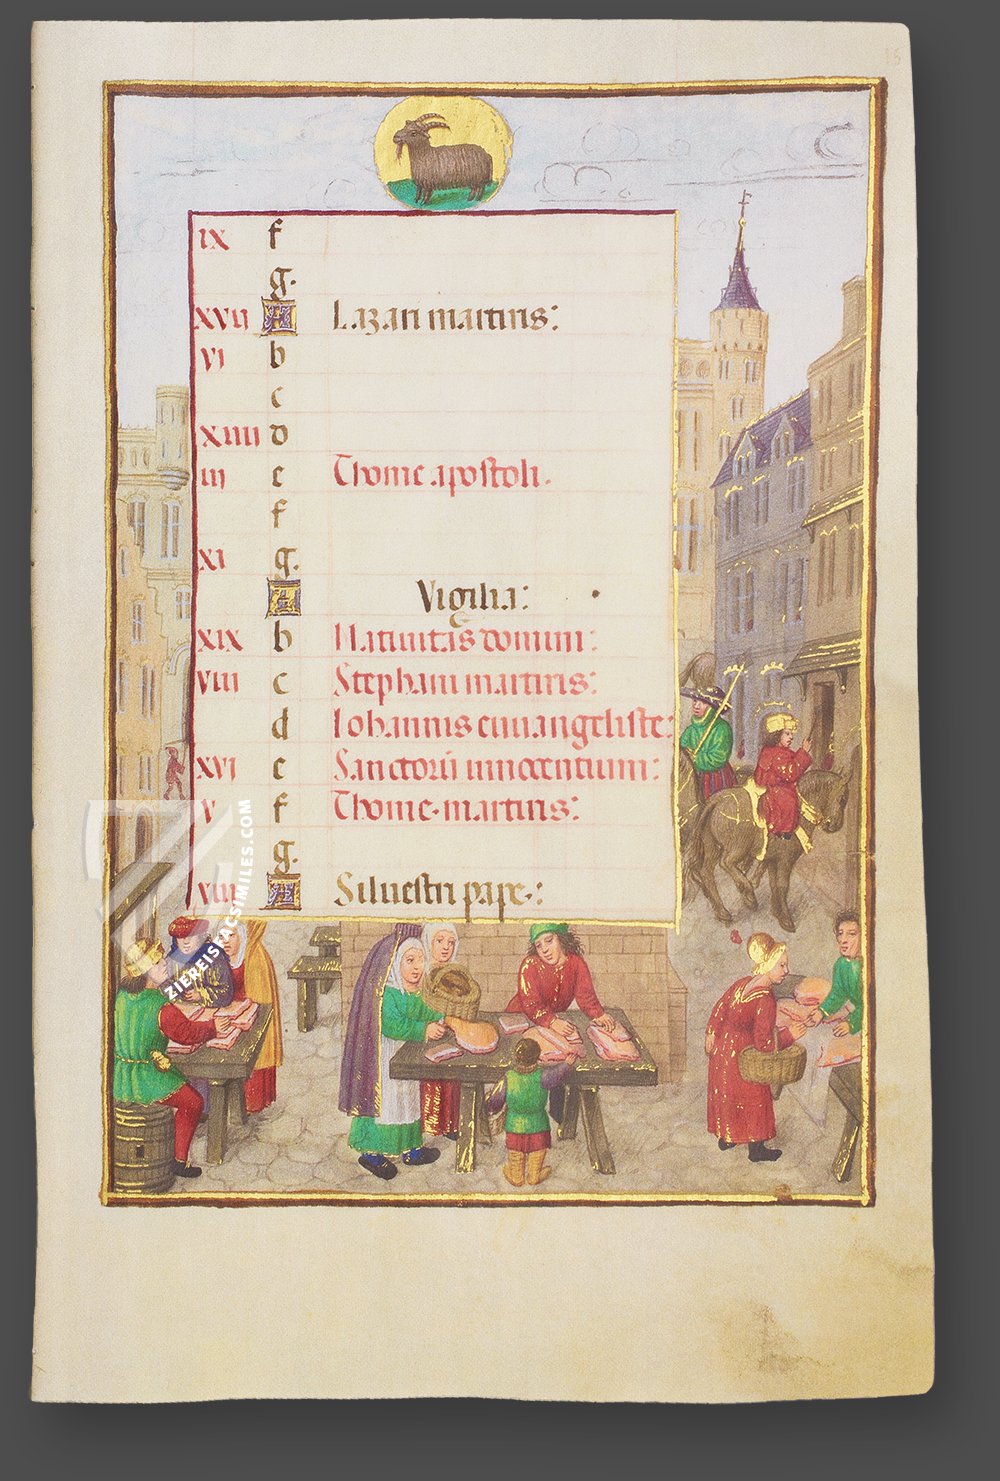 IX f
g.
XVII A Lazari martiris:
VI b
c
XIIII d
III e Thome apostoli.
f
XI g.
A Vigilia:
XIX b Nativitas domini:
VIII c Stephani martiris:
d Iohannis euuangeliste:
XVI e Sanctorũ innocentium:
V f Thome martiris:
g.
XIII A Siluestri pape:
ZIEREISFACSIMILES.COM